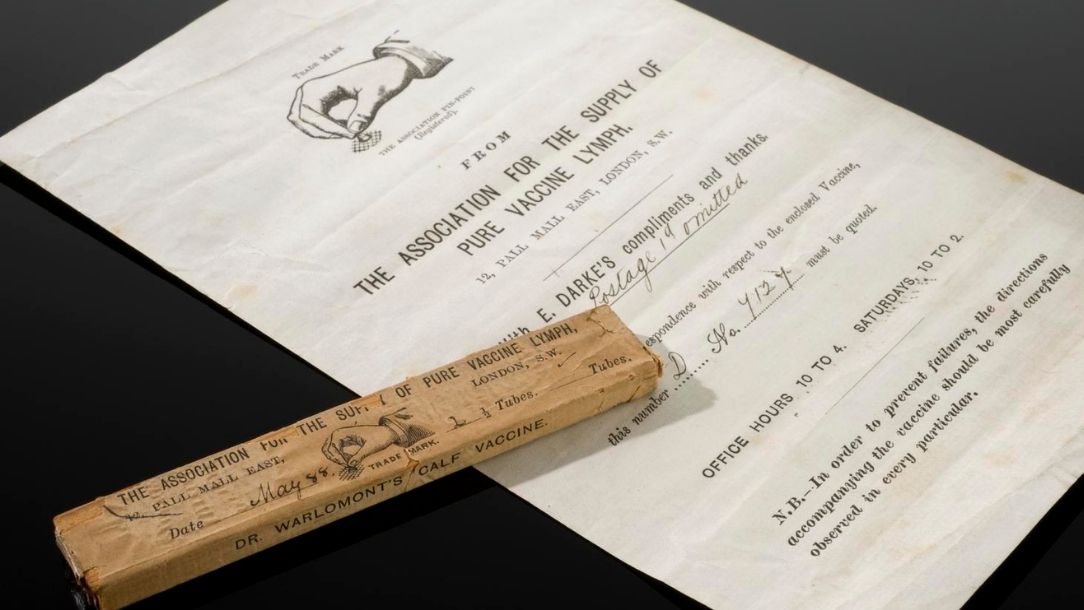 TRADE MARK
THE ASSOCIATION PIN-POINT
(Registered).
FROM
THE ASSOCIATION FOR THE SUPPLY OF
PURE VACCINE LYMPH.
12, PALL MALL EAST, LONDON, S.W.
With E. DARKE'S compliments and thanks.
Postage 1d omitted
respondence with respect to the enclosed Vaccine,
this number D No. 7127 must be quoted.
OFFICE HOURS 10 TO 4. SATURDAYS, 10 TO 2.
N.B.—In order to prevent failures, the directions
accompanying the vaccine should be most carefully
observed in every particular.
THE ASSOCIATION FOR THE SUPPLY OF PURE VACCINE LYMPH,
12, PALL MALL EAST, LONDON, S.W.
Date May 88. TRADE MARK. 2 ½ Tubes. Tubes.
DR. WARLOMONT'S CALF VACCINE.